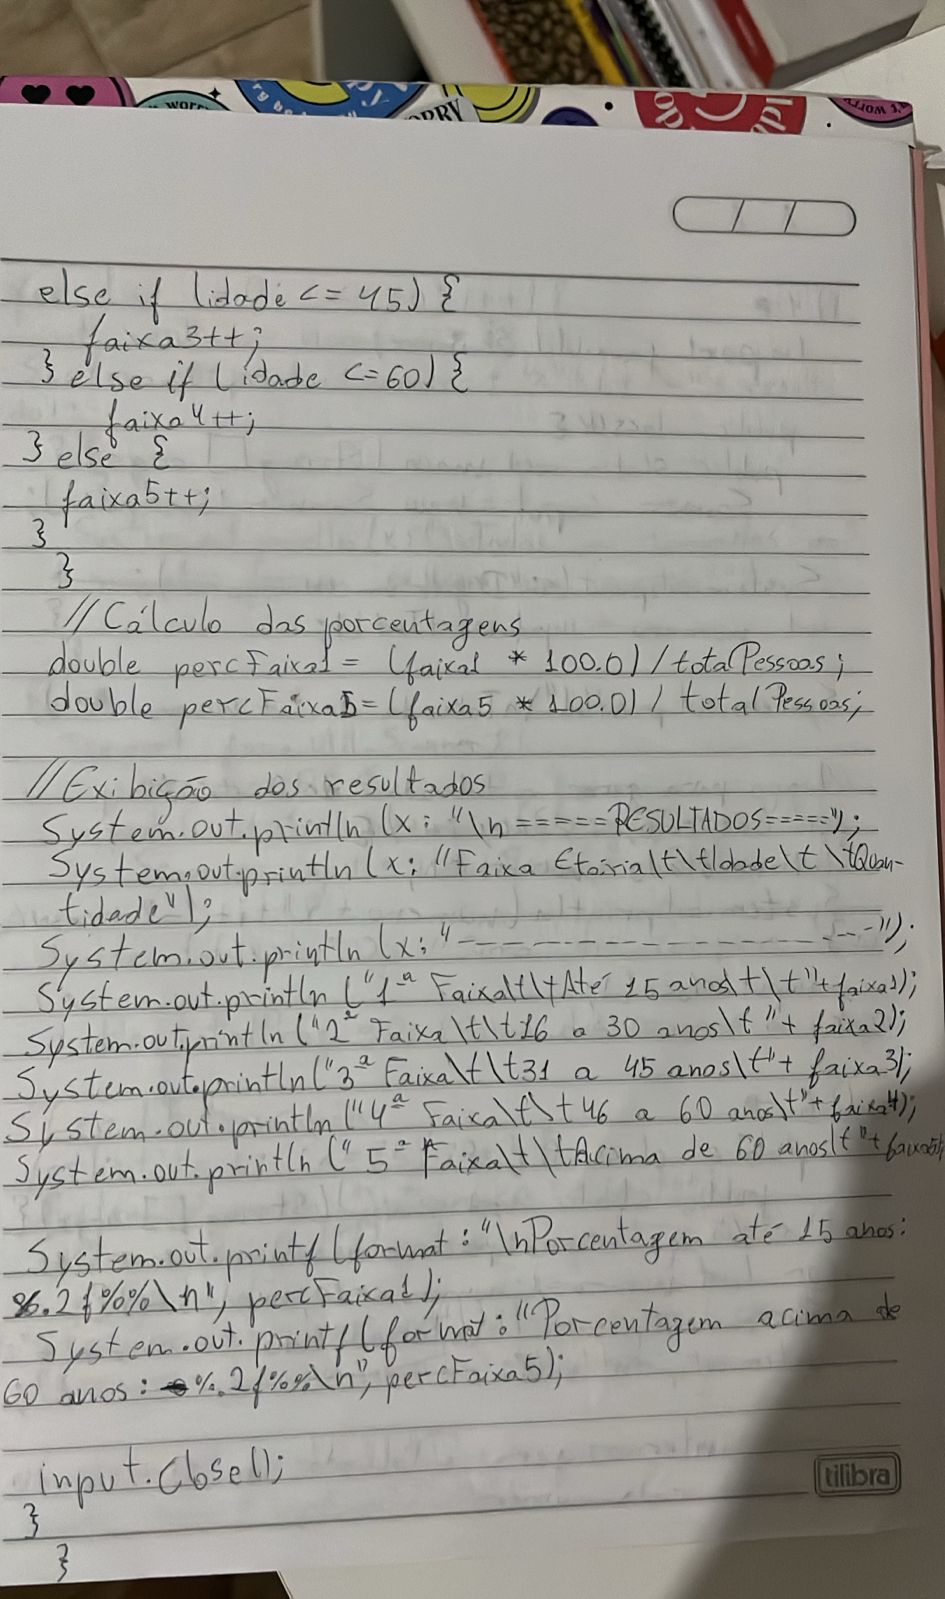 WORRY
else if (idade <= 45) {
faixa3++;
} else if (idade <=60) {
faixa4++;
} else {
faixa5++;
}
}
//Cálculo das porcentagens
double percFaixa1 = (faixa1 * 100.0) / totalPessoas;
double percFaixa5 = (faixa5 * 100.0) / totalPessoas;
//Exibição dos resultados
System.out.println (x: "\n =====RESULTADOS=====");
System.out.println (x: "Faixa Etária\t\tIdade\t\tQuan-
tidade");
System.out.println (x: "--------------------");
System.out.println ("1ª Faixa\t\tAté 15 anos\t\t"+faixa1);
System.out.println ("2ª Faixa\t\t16 a 30 anos\t"+ faixa2);
System.out.println("3ª Faixa\t\t31 a 45 anos\t"+ faixa3);
System.out.println ("4ª Faixa\t\t46 a 60 anos\t"+faixa4);
System.out.println (" 5ª Faixa\t\tAcima de 60 anos\t"+faixa5);
System.out.printf (format: "\nPorcentagem até 15 anos:
%.2f%%\n", percFaixa1);
System.out.printf (format: "Porcentagem acima de
60 anos: %.2f%%\n", percFaixa5);
input.close();
}
}
tilibra